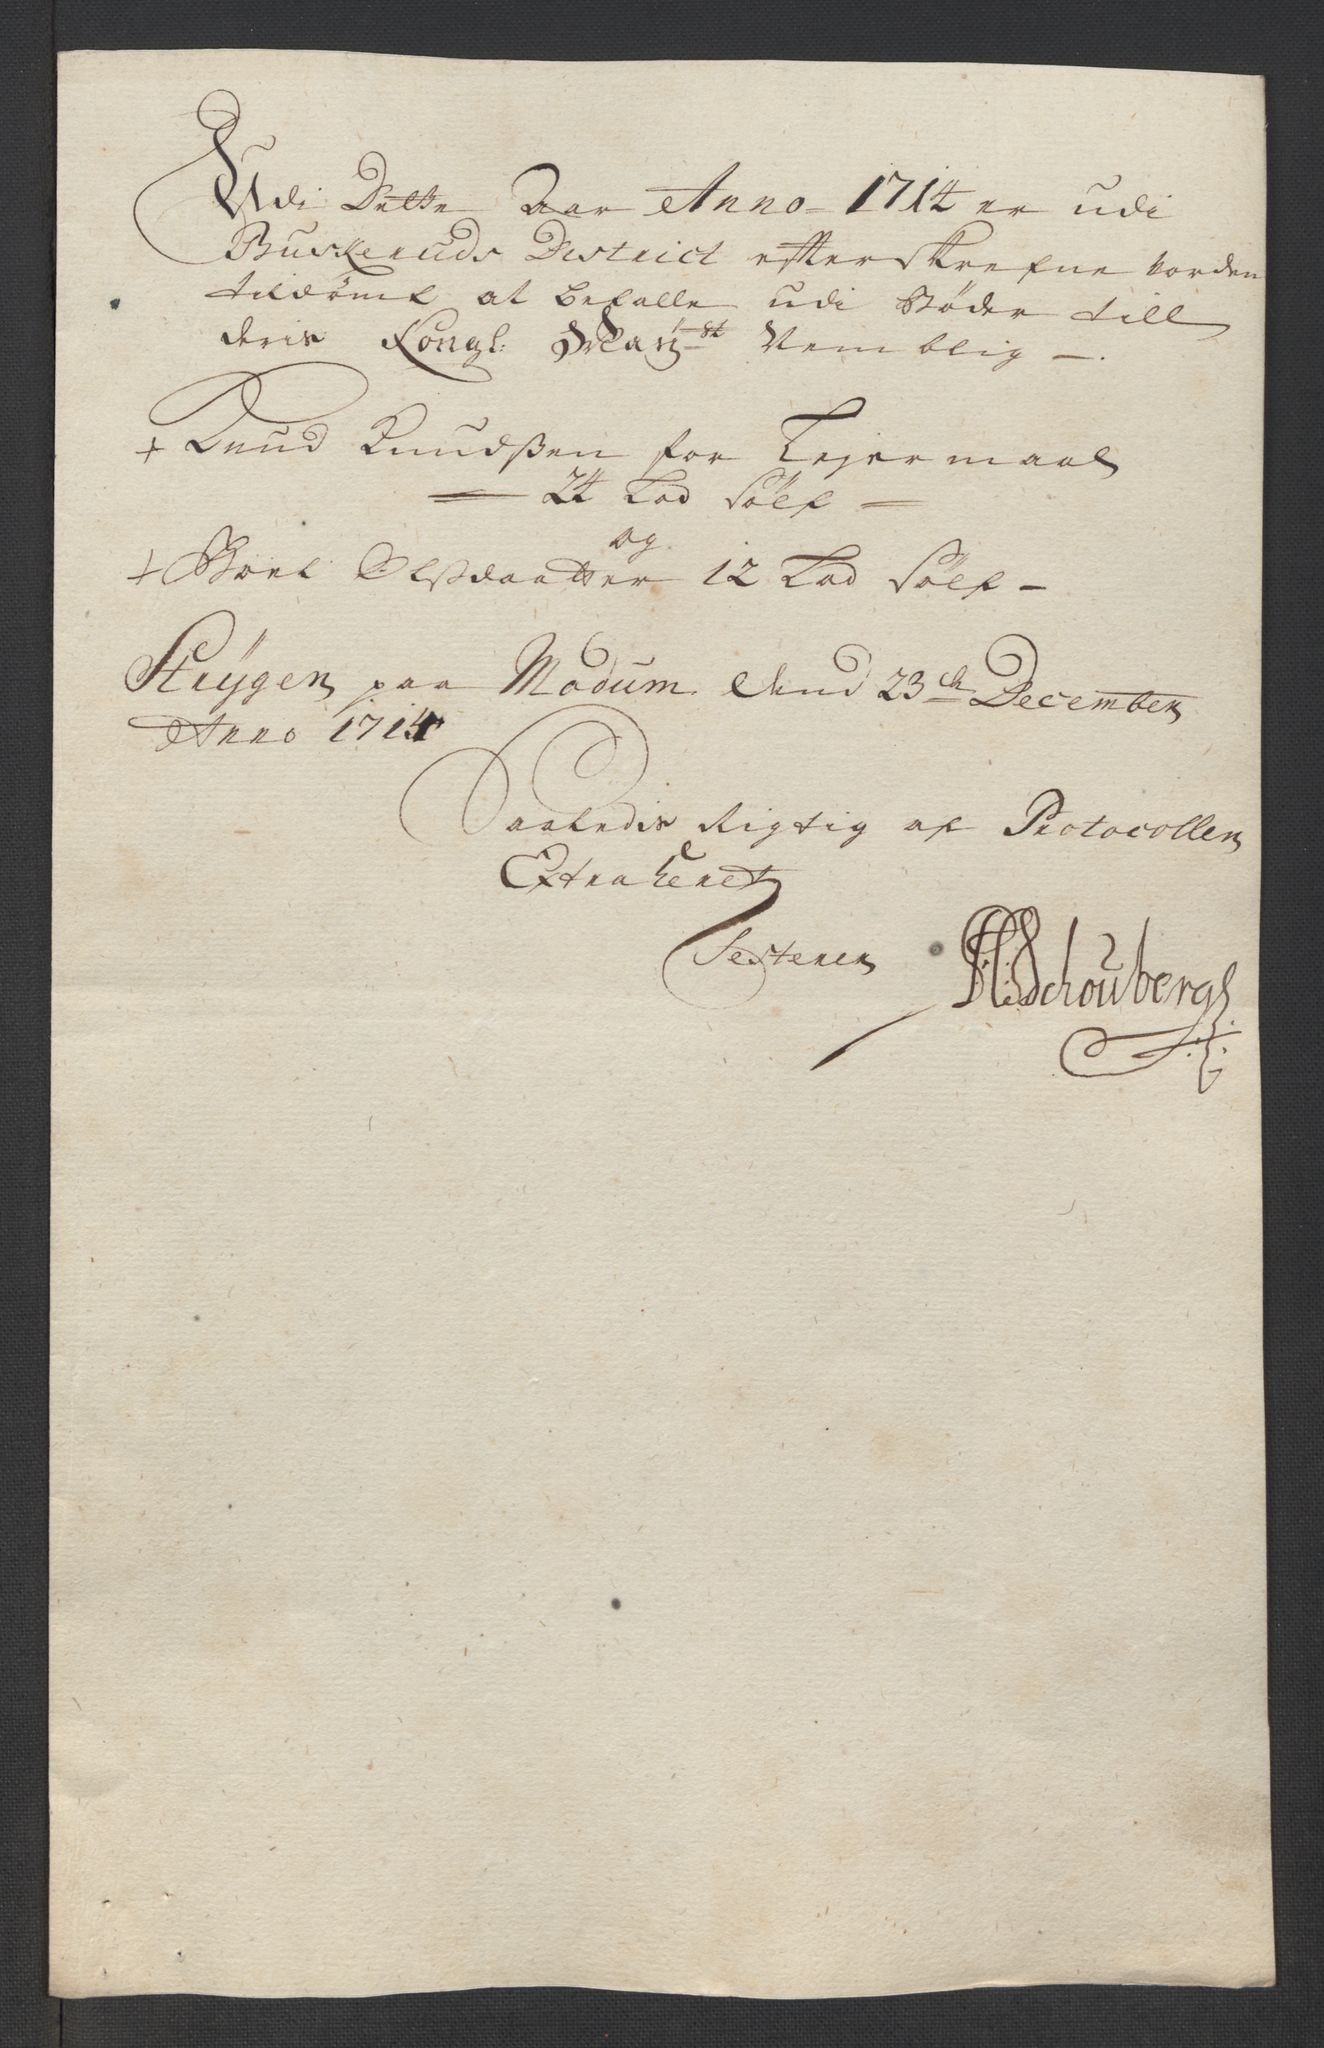 Udi Dette Aar Anno 1714 er udi
Buskeruds District efterskrefne vorden
tildømt at betalle udi Bøder till
deris Kongl: May.st Nemblig –.
+ Knud Knudßen for Leyermaal
24 Lod Sölf –
og
+ Boel Olßdaatter 12 Lod Sölf –
Strÿgen paa Modum dend 23de December
Anno 1714
Saaledis Rigtig af Protocollen
Extraheret
Testerer
HSchoubergh